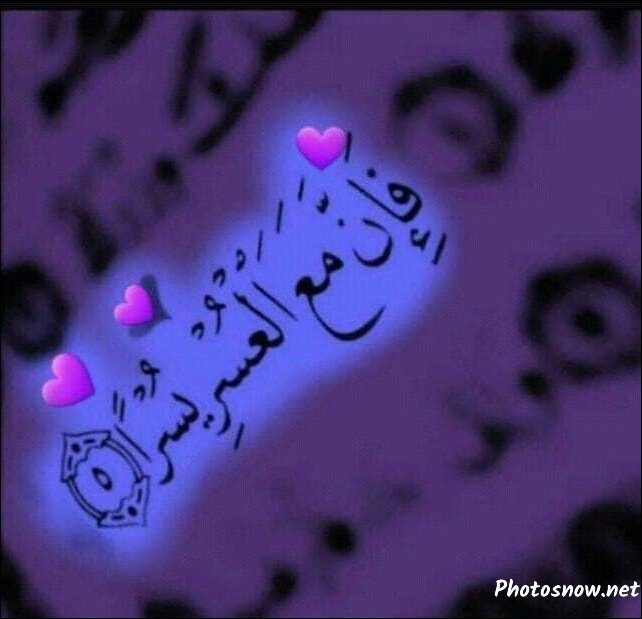 فَإِنَّ مَعَ الْعُسْرِ يُسْرًا ۝٥
Photosnow.net